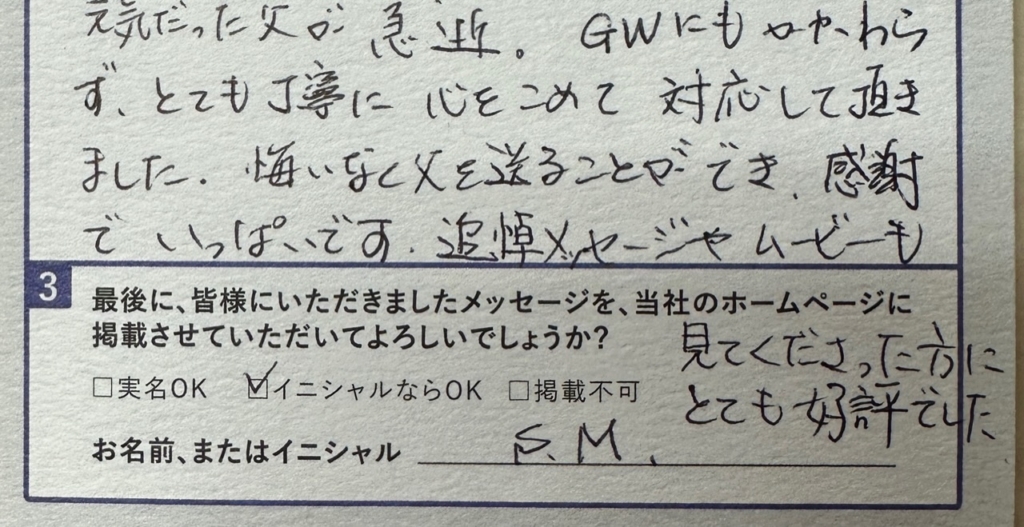 元気だった父が急逝。GWにもかかわら
ず、とても丁寧に心をこめて対応して頂き
ました。悔いなく父を送ることができ、感謝
でいっぱいです。追悼メッセージやムービーも
見てくださった方に
とても好評でした
3
最後に、皆様にいただきましたメッセージを、当社のホームページに
掲載させていただいてよろしいでしょうか?
□実名OK ☑イニシャルならOK □掲載不可
お名前、またはイニシャル S.M.